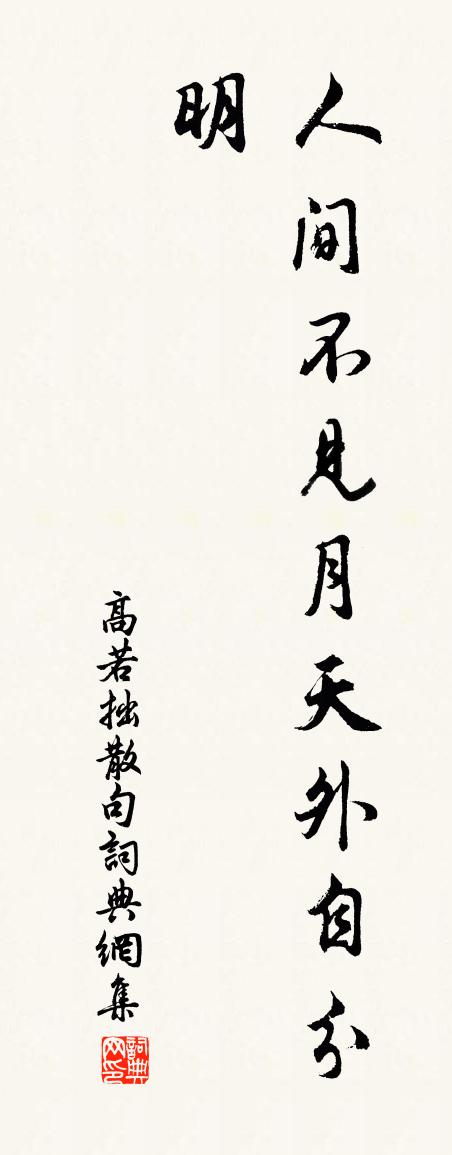 人间不見月天外自分
明
高若拙散句詞典網集
詞典网印